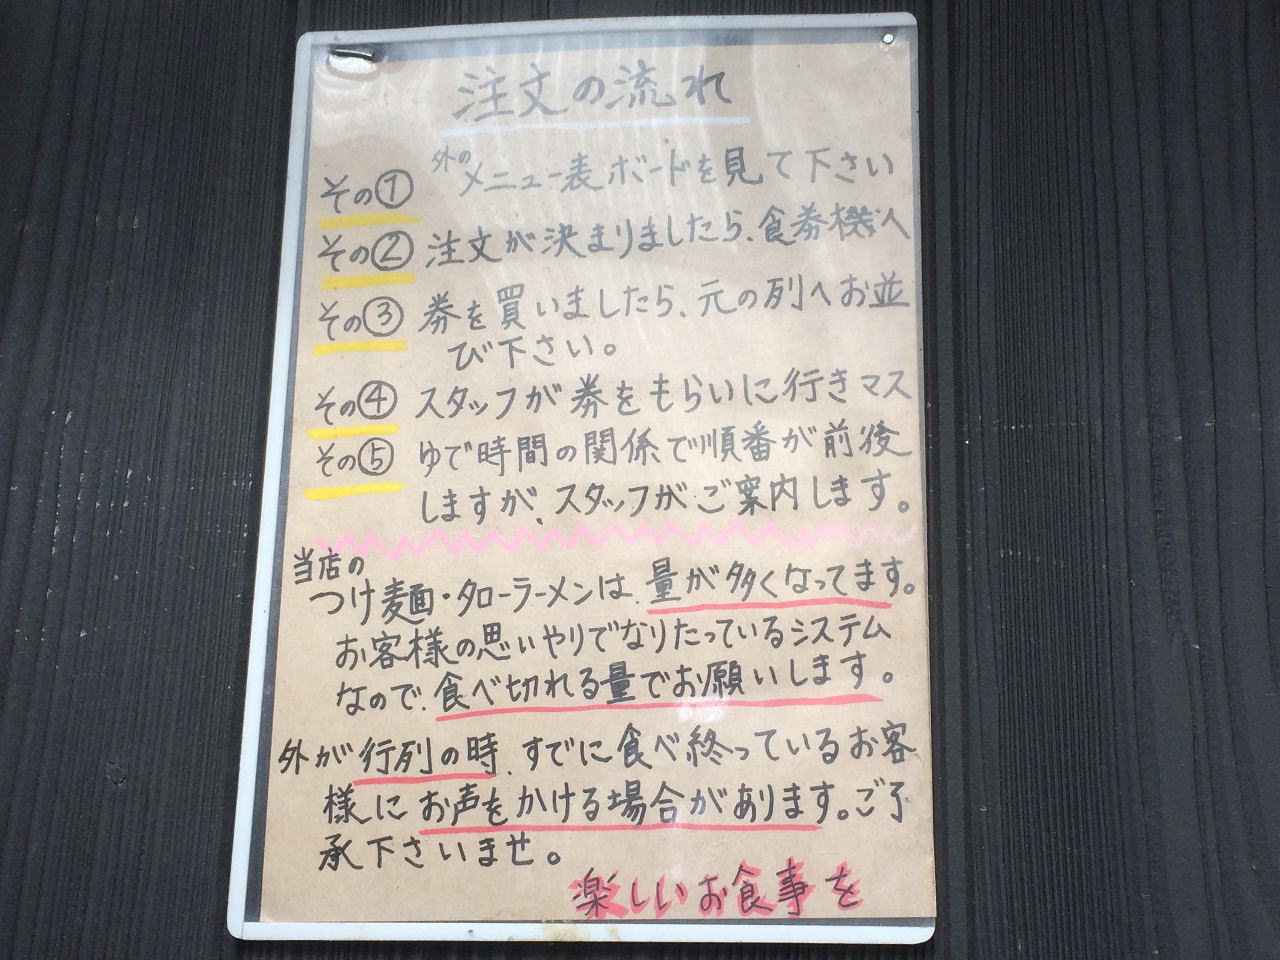 注文の流れ
その① 外のメニュー表ボードを見て下さい
その② 注文が決まりましたら、食券機へ
その③ 券を買いましたら、元の列へお並
び下さい。
その④ スタッフが券をもらいに行きマス
その⑤ ゆで時間の関係で順番が前後
しますが、スタッフがご案内します。
当店の
つけ麺・タローラーメンは、量が多くなってます。
お客様の思いやりでなりたっているシステム
なので、食べ切れる量でお願いします。
外が行列の時、すでに食べ終っているお客
様にお声をかける場合があります。ご了
承下さいませ。
楽しいお食事を